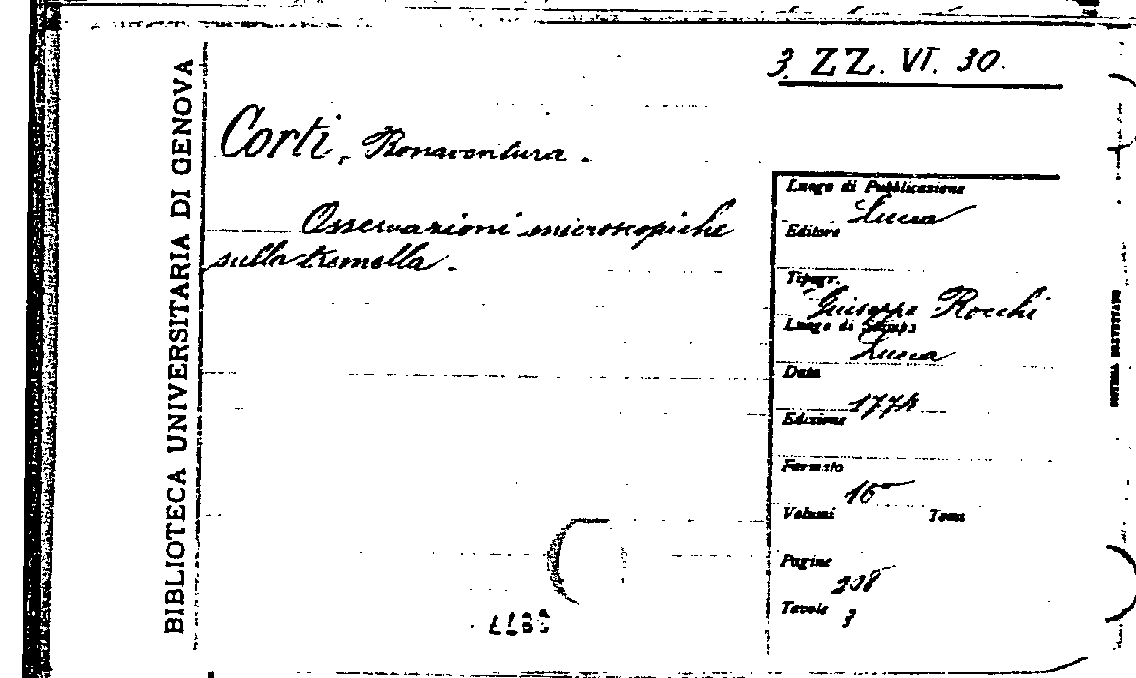 3. ZZ. VI. 30.
BIBLIOTECA UNIVERSITARIA DI GENOVA
Corti, Bonaventura.
Osservazioni microscopiche
sulla tremella.
Luogo di Pubblicazione
Lucca
Editore
Tipogr.
Giuseppe Rocchi
Luogo di Stampa
Lucca
Data
1774
Edizione
Formato
16°
Volumi Tomi
Pagine
208
Tavole 3